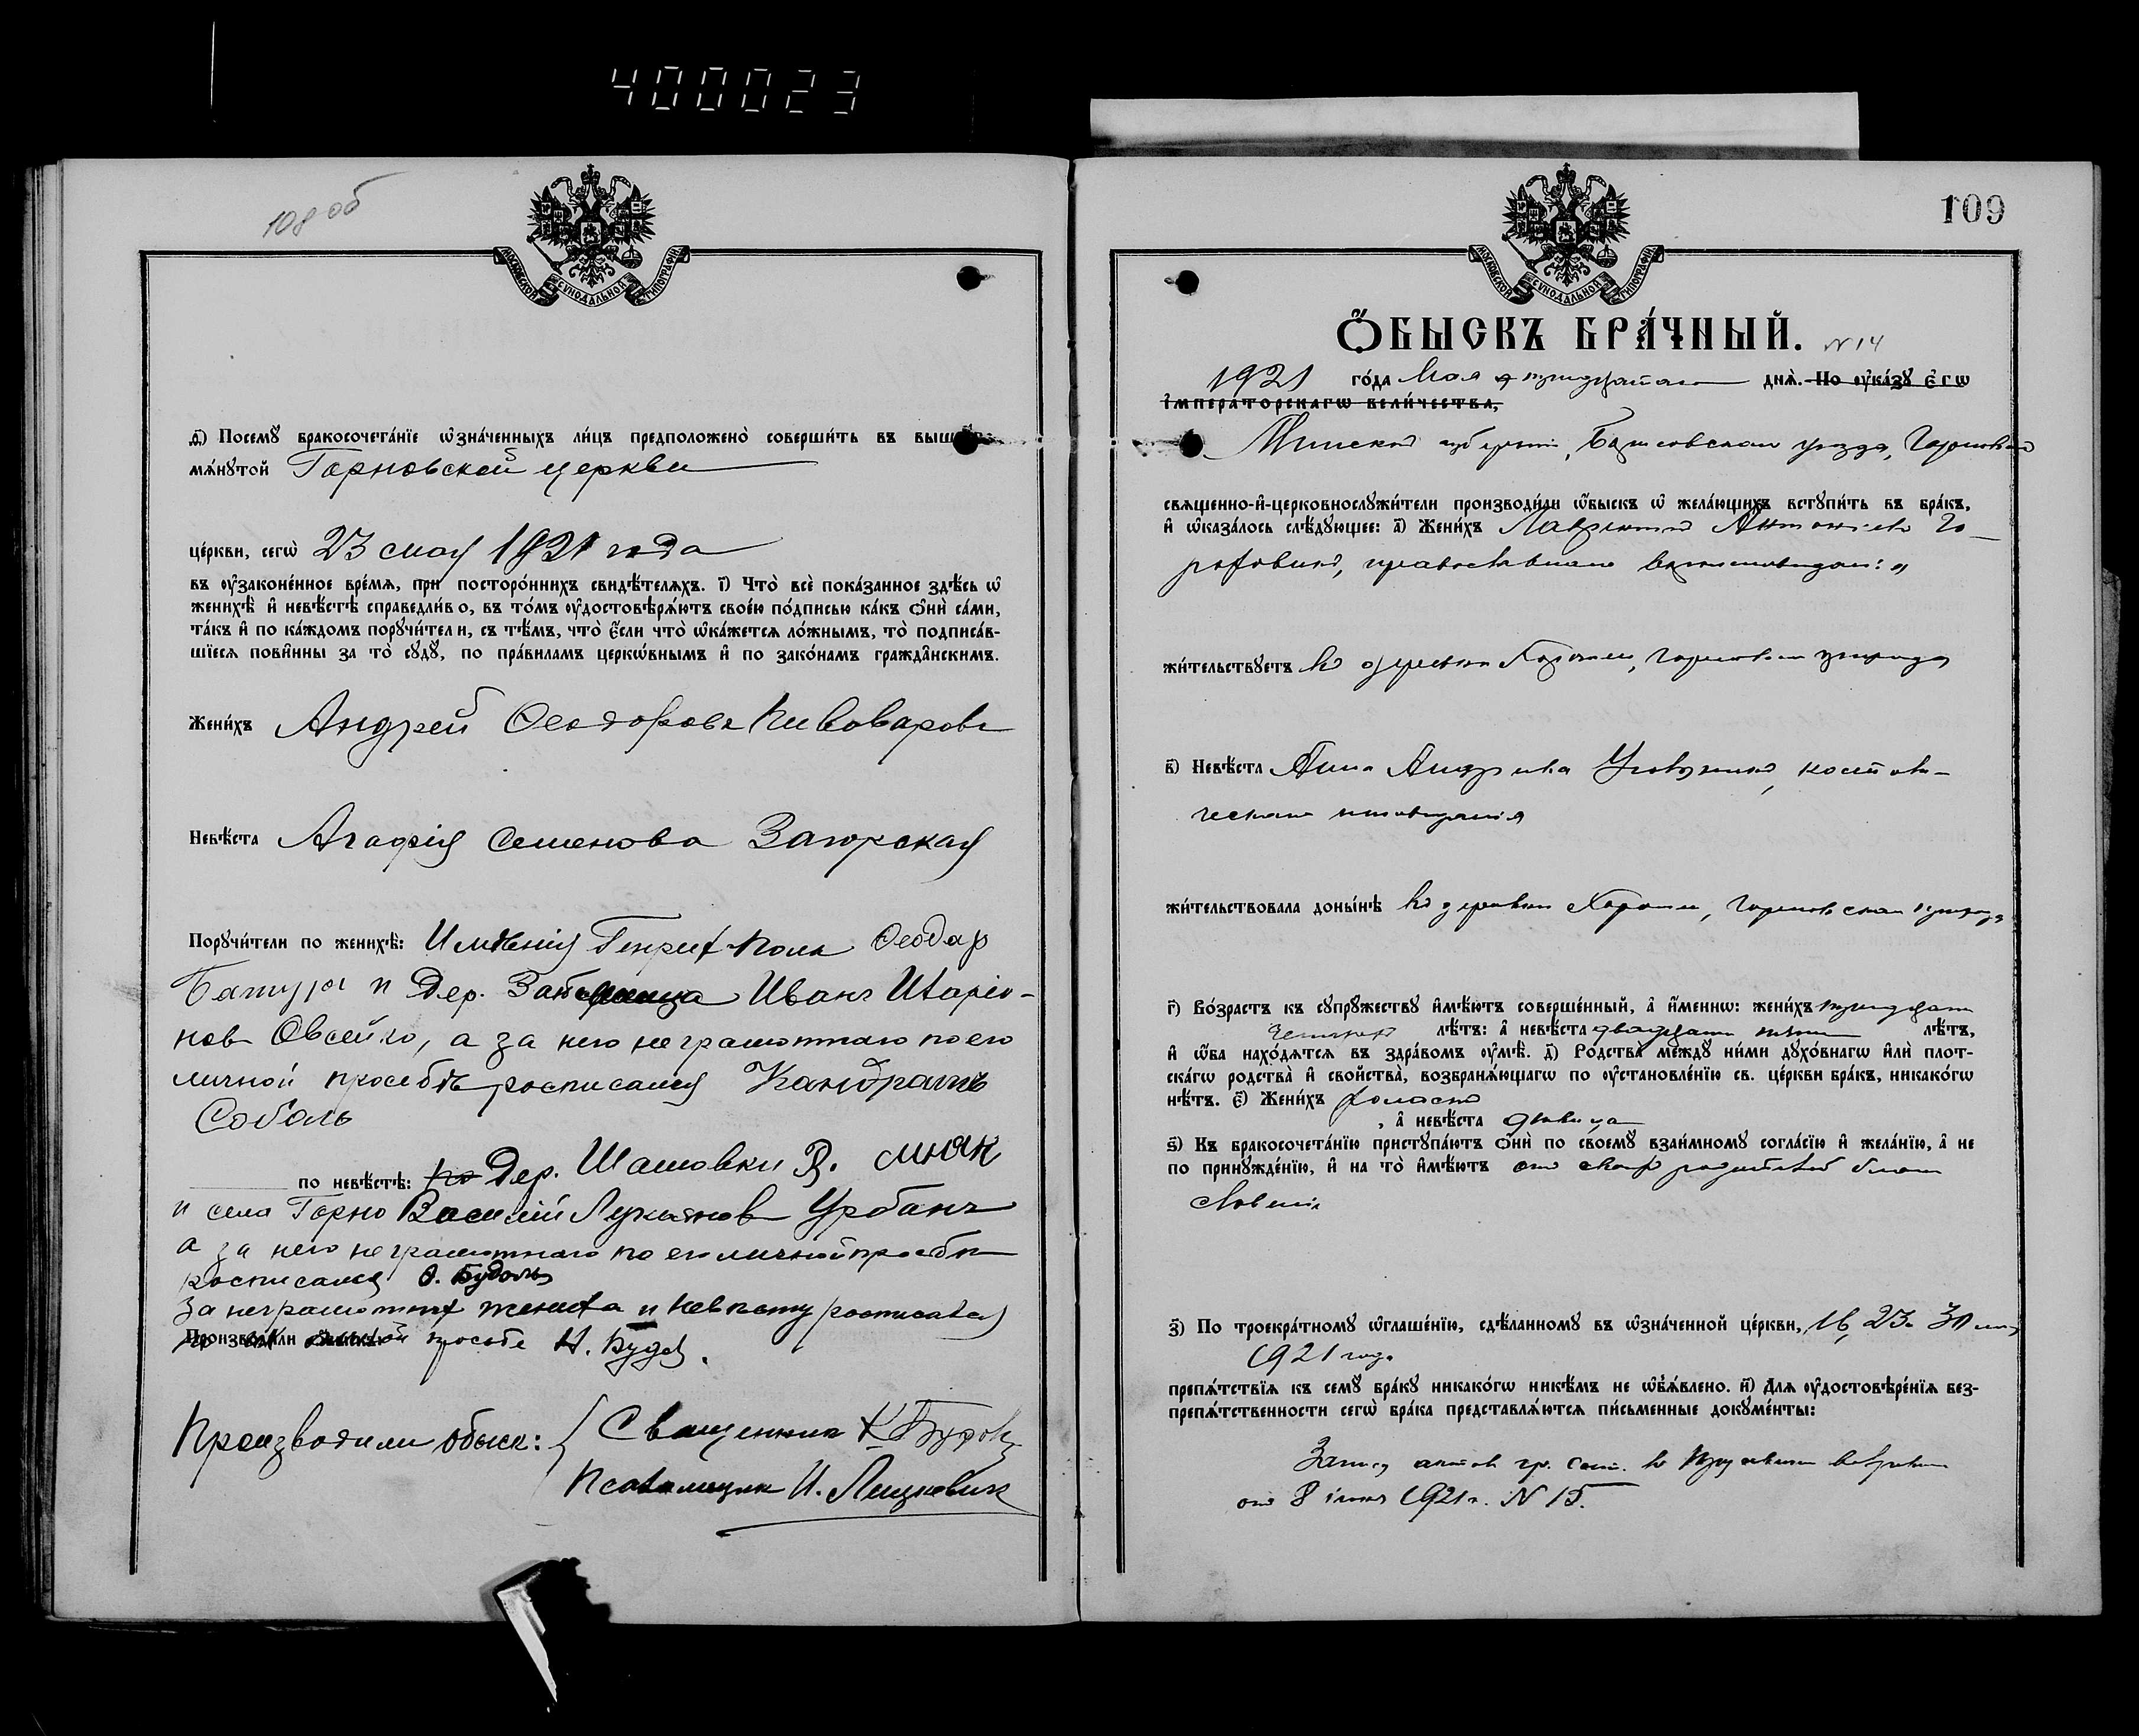 400023
108 об
МОСКОВСКОЙ СѴНОДАЛЬНОЙ ТИПОГРАФІИ
д҃) Посемꙋ̀ бракосочета́нїе ѡ҆зна́ченныхъ ли́цъ предположено̀ соверши́ть въ выше
мѧ́нꙋтой Горновской церкви
це́ркви, сегѡ̀ 23 мая 1921 года
въ ᲂу҆зако́ненное вре́мѧ, при посторо́ннихъ свидѣ́телѧхъ. і҃) Что̀ всѐ пока́занное здѣ́сь ѡ҆
женихѣ̀ и҆ невѣ́стѣ справедли́во, въ то́мъ ᲂу҆достовѣрѧ́ютъ свое́ю по́дписью ка́къ ѻ҆нѝ са́ми,
та́къ и҆ по ка́ждомъ порꙋчи́тели, съ тѣ́мъ, что̀ є҆́сли что̀ ѡ҆ка́жетсѧ ло́жнымъ, то̀ подписа́в-
шїесѧ пови́нны за то̀ сꙋдꙋ̀, по пра́виламъ церкѡ́внымъ и҆ по зако́намъ гражда́нскимъ.
Жени́хъ Андрей Ѳеодоровъ Пивоваровъ
Невѣ́ста Агафія Семенова Загорская
Порꙋчи́тели по женихѣ̀: Имѣнія Генрих-поля Ѳеодор
Батура и Дер. Иванъ Иларіо-
новъ Овсейко, а за него неграмотнаго по его
личной просьбѣ росписался Кандратъ
Соболь
по невѣ́стѣ: Дер. Шамовки В.
и села Горно Василій Лукьяновъ Урбанъ
а за него неграмотнаго по его личной просьбѣ
росписался
За неграмотных жениха и невѣсту росписался
Произвѡди́ли просьбе Н.
Производили обыск: Священник К.
Псаломщик И. Лицкевич
109
МОСКОВСКОЙ СѴНОДАЛЬНОЙ ТИПОГРАФІИ
Ѻ҆́БЫСКЪ БРА́ЧНЫЙ. N 14
1921 го́да Мая тридцатаго днѧ̀. По ᲂу҆ка́зꙋ Є҆гѡ̀
І҆мпера́торскагѡ вели́чества,
Минской губерніи, Борисовскаго уѣзда, Горновской
свѧще́нно-и҆-церковнослꙋжи́тели производи́ли ѡ҆́быскъ ѡ҆ жела́ющихъ встꙋпи́ть въ бра́къ,
и҆ ѡ҆каза́лось слѣ́дꙋющее: а҃) Жени́хъ Лаврентій Антоніевъ Го-
роховикъ, православнаго вероисповедания
жи́тельствꙋетъ въ деревнѣ Горновскаго прихода
в҃) Невѣ́ста Анна Андреева католи-
ческаго исповѣданія
жи́тельствовала доны́нѣ въ деревни Горновскаго прихода
г҃) Во́зрастъ къ сꙋпрꙋ́жествꙋ и҆мѣ́ютъ соверше́нный, а҆ и҆́меннѡ: жени́хъ тридцати
четырех лѣ́тъ: а҆ невѣ́ста двадцати пяти лѣ́тъ,
и҆ ѡ҆́ба нахо́дѧтсѧ въ здра́вомъ ᲂу҆мѣ̀. д҃) Ро́дства междꙋ̀ ни́ми дꙋхо́внагѡ и҆лѝ пло́т-
скагѡ родства̀ и҆ сво́йства, возбранѧ́ющагѡ по ᲂу҆становле́нїю св. це́ркви бра́къ, никако́гѡ
нѣ́тъ. є҃) Жени́хъ холостъ
, а҆ невѣ́ста дѣвица
ѕ҃) Къ бракосочета́нїю пристꙋпа́ютъ ѻ҆нѝ по своемꙋ̀ взаи́мномꙋ согла́сїю и҆ жела́нїю, а҆ не
по принꙋжде́нїю, и҆ на то̀ и҆мѣ́ютъ от своих родителей благо
словеніе
з҃) По троекра́тномꙋ ѡ҆глаше́нїю, сдѣ́ланномꙋ въ ѡ҆зна́ченной це́ркви, 16, 23. 30 мая
1921 года
препѧ́тствїѧ къ семꙋ̀ бра́кꙋ никако́гѡ никѣ́мъ не ѡ҆б̾ѧ́влено. и҃) Длѧ ᲂу҆достовѣре́нїѧ без-
препѧ́тственности сегѡ̀ бра́ка представлѧ́ютсѧ пи́сьменные докꙋме́нты:
Запись актов гр. сост.
от 8 1921 г. N 15.